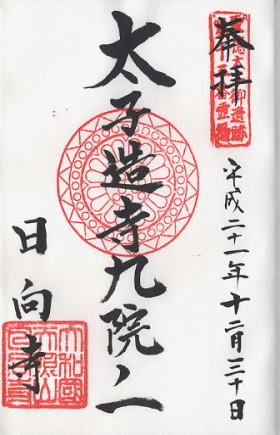 奉拝
平成二十一年十二月三十日
太子造寺九院ノ一
日向寺